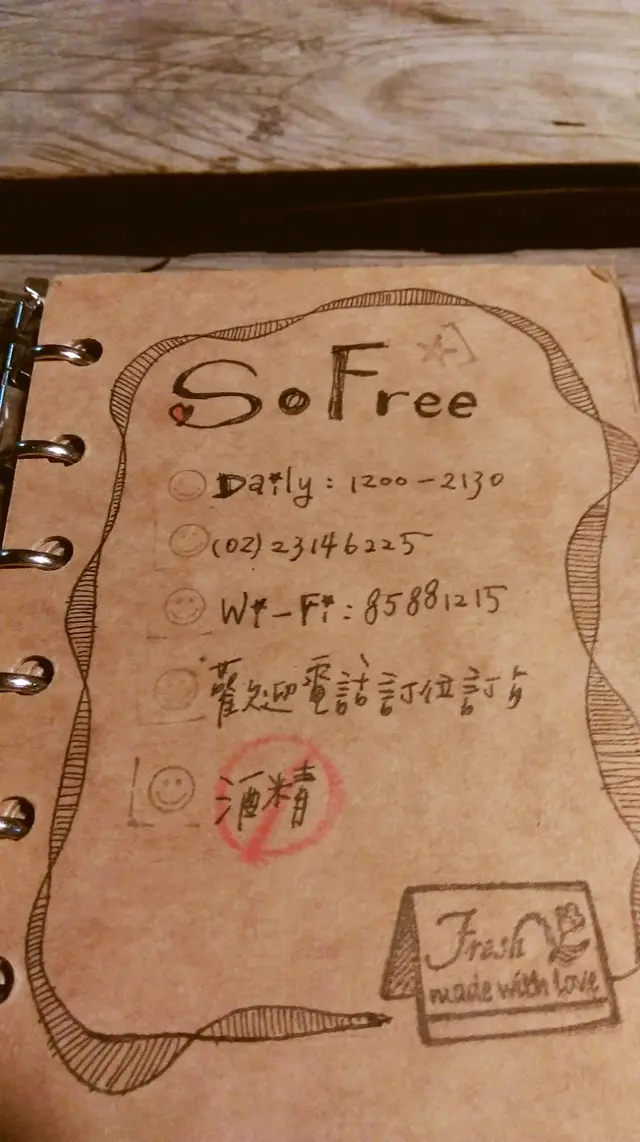 SoFree
Daily : 1200-2130
(02)23146225
Wi-Fi : 85881215
歡迎電話訂位訂貨
酒精
Fresh
made with love